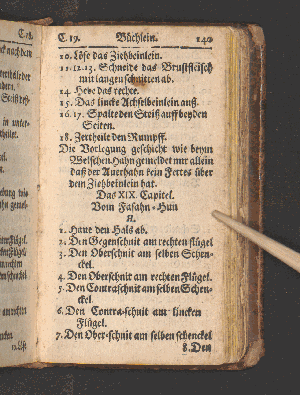 C. 19. Büchlein. 140
10. Löse das Ziehbeinlein.
11. 12. 13. Schneide das Brustfleisch
mit langen schnitten ab.
14. Hebe das rechte.
15. Das lincke Achselbeinlein auß.
16. 17. Spalte den Streiß auff beyden
Seiten.
18. Zertheile den Rumpff.
Die Vorlegung geschicht wie beym
Welschen Hahn gemeldet mit allein
daß der Auerhahn kein Fettes über
dem Ziehbeinlein hat.
Das XIX. Capitel.
Vom Fasahn-Hun
H.
1. Haue den Hals ab.
2. Den Gegenschnit am rechten flügel
3. Den Oberschnit am selben Schen-
ckel.
4. Den Oberschnit am rechten Flügel.
5. Den Contraschnit am selben Schen-
ckel.
6. Den Contra-schnit am lincken
Flügel.
7. Den Ober-schnit am selben schenckel
8. Den